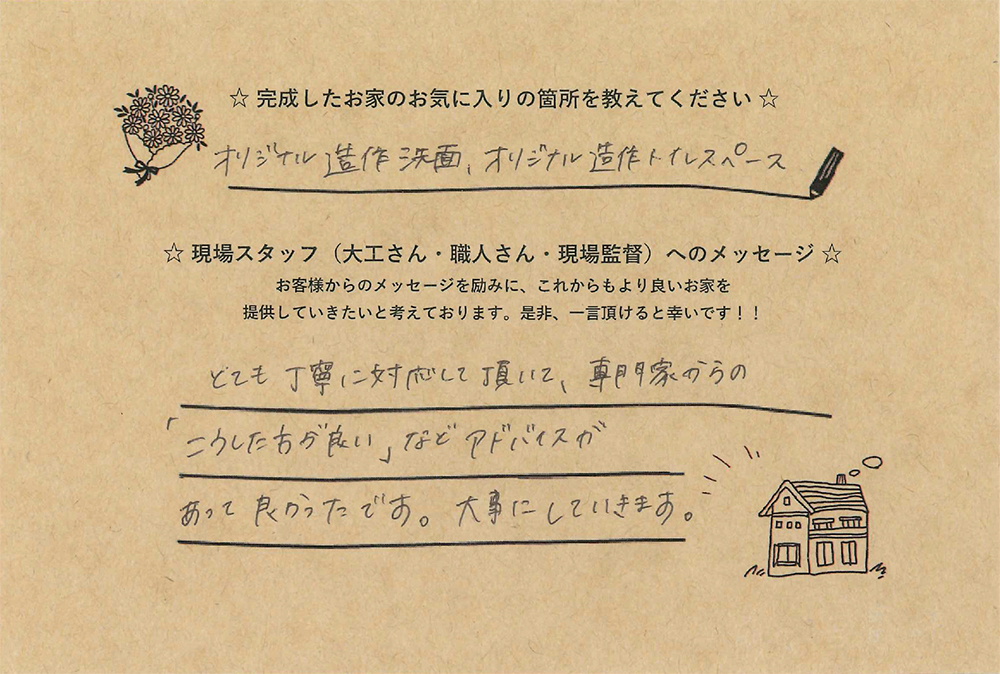 ☆ 完成したお家のお気に入りの箇所を教えてください ☆
オリジナル造作洗面、オリジナル造作トイレスペース
☆ 現場スタッフ（大工さん・職人さん・現場監督）へのメッセージ ☆
お客様からのメッセージを励みに、これからもより良いお家を
提供していきたいと考えております。是非、一言頂けると幸いです！！
とても丁寧に対応して頂いて、専門家からの
「こうした方が良い」などアドバイスが
あって良かったです。大事にしていきます。